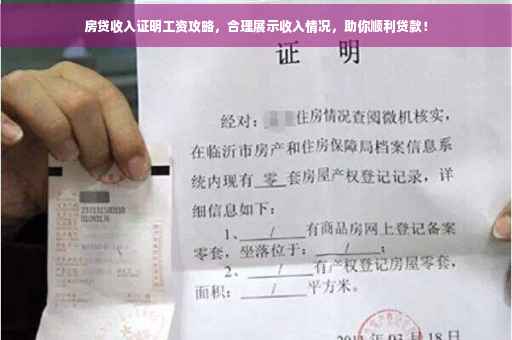 房贷收入证明工资攻略，合理展示收入情况，助你顺利贷款！
证 明
经对：住房情况查阅微机核实，
在临沂市房产和住房保障局档案信息系
统内现有 零 套房屋产权登记记录，详
细信息如下：
1、 / 有商品房网上登记备案
零套，坐落位于： / ；
2、 / 有产权登记房屋零套，
面积： / 平方米。
月 18 日